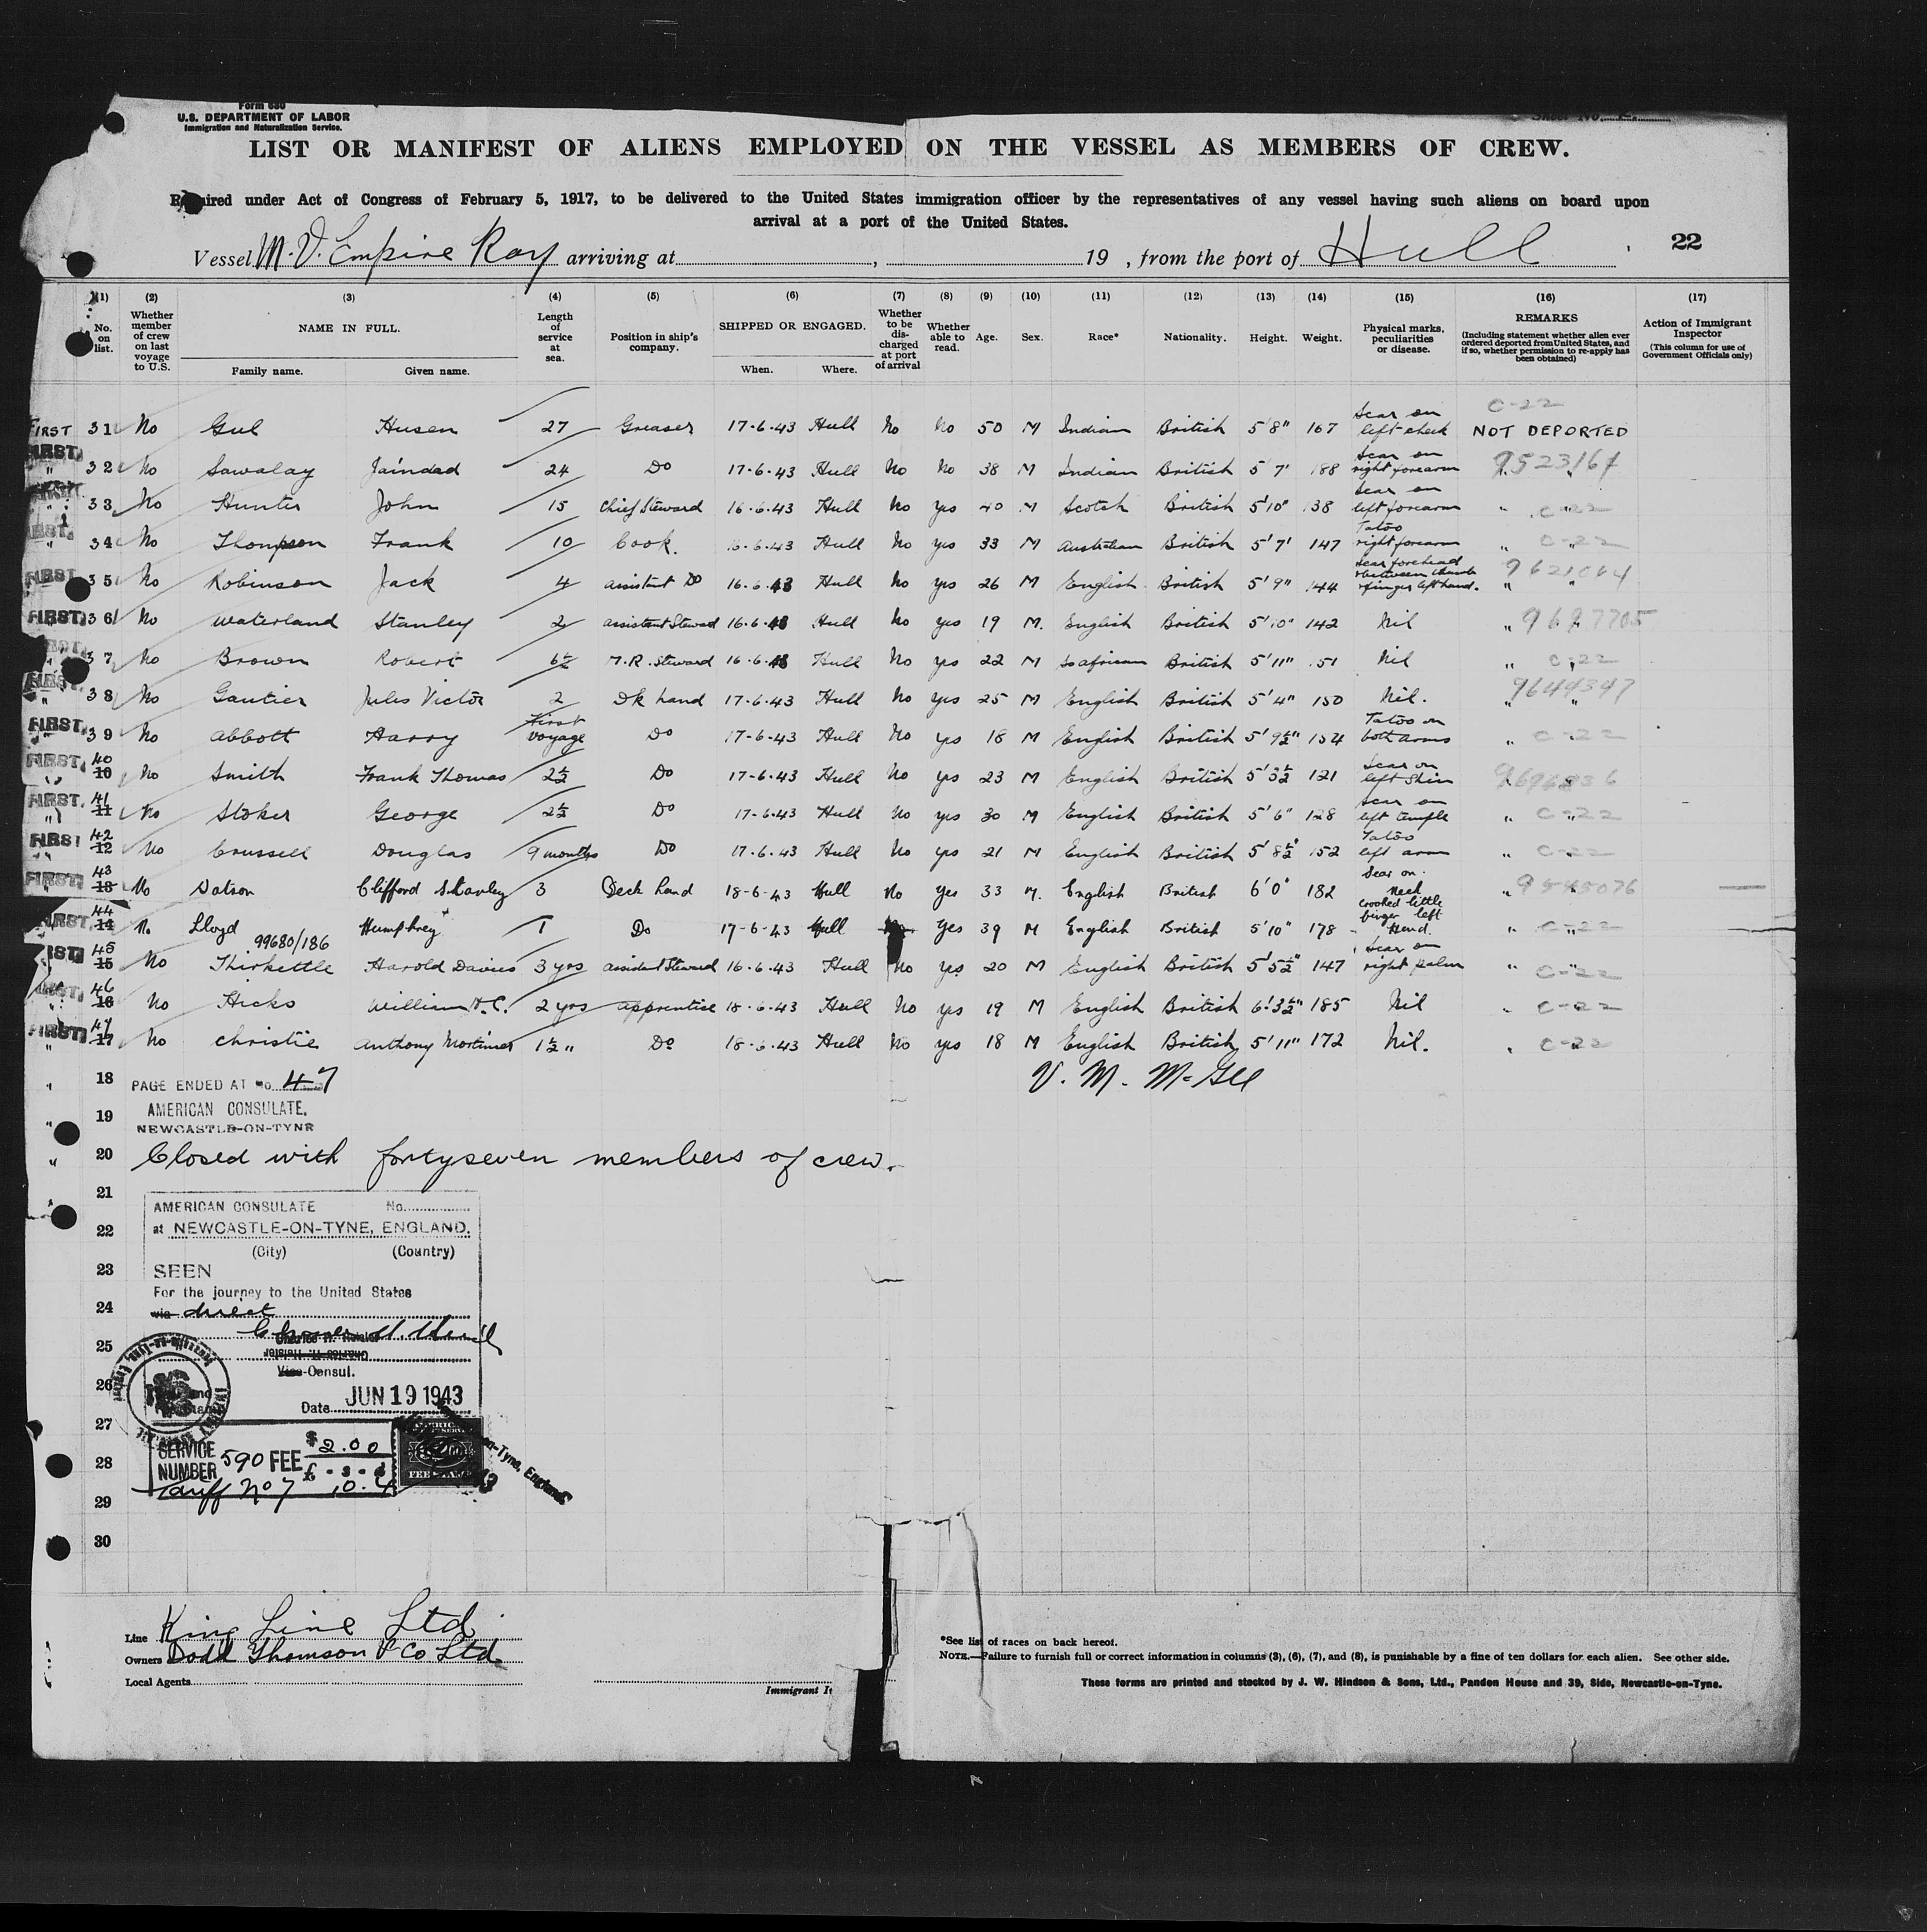 Form 680
U.S. DEPARTMENT OF LABOR
Immigration and Naturalization Service.
Sheet No.
LIST OR MANIFEST OF ALIENS EMPLOYED ON THE VESSEL AS MEMBERS OF CREW.
Required under Act of Congress of February 5, 1917, to be delivered to the United States immigration officer by the representatives of any vessel having such aliens on board upon
arrival at a port of the United States.
Vessel M.V. Empire Ray arriving at , 19 , from the port of Hull 22
(1) (2) (3) (4) (5) (6) (7) (8) (9) (10) (11) (12) (13) (14) (15) (16) (17)
No. on list. Whether member of crew on last voyage to U.S. NAME IN FULL. Family name. Given name. Length of service at sea. Position in ship's company. SHIPPED OR ENGAGED. When. Where. Whether to be discharged at port of arrival Whether able to read. Age. Sex. Race* Nationality. Height. Weight. Physical marks, peculiarities or disease. REMARKS (Including statement whether alien ever ordered deported from United States, and if so, whether permission to re-apply has been obtained) Action of Immigrant Inspector (This column for use of Government Officials only)
FIRST 31 No Gul Husen 27 Greaser 17-6-43 Hull No No 50 M Indian British 5'8" 167 Scar on left cheek C-22 NOT DEPORTED
FIRST " 32 No Sawalay Jaindad 24 Do 17-6-43 Hull No No 38 M Indian British 5'7" 188 Scar on right forearm 9523167 "
33 No Hunter John 15 Chief Steward 16-6-43 Hull No yes 40 M Scotch British 5'10" 138 Scar on left forearm " C-22
34 No Thompson Frank 10 Cook. 16-6-43 Hull No yes 33 M Australian British 5'7" 147 Tatoo right forearm " C-22
FIRST 35 No Robinson Jack 4 assistant Do 16-6-43 Hull No yes 26 M English British 5'9" 144 Scar forehead between thumb & finger left hand. 9621064 "
FIRST 36 No Waterland Stanley 2 assistant Steward 16-6-43 Hull No yes 19 M. English British 5'10" 142 Nil " 9697705
37 No Brown Robert 6½ M.R. Steward 16-6-43 Hull No yes 22 M So african British 5'11" 151 Nil " C-22
FIRST 38 No Gautier Jules Victor 2 Dk hand 17-6-43 Hull No yes 25 M English British 5'4" 150 Nil. 9644347 "
FIRST 39 No Abbott Harry First voyage Do 17-6-43 Hull No yes 18 M English British 5'9½" 154 Tatoo on both arms " C-22
FIRST 40 10 No Smith Frank Thomas 2½ Do 17-6-43 Hull No yes 23 M English British 5'3½ 121 Scar on left Shin 9696836
FIRST 41 11 No Stoker George 2½ Do 17-6-43 Hull No yes 30 M English British 5'6" 128 Scar on left temple " C-22
FIRST 42 12 No Crussell Douglas 9 months Do 17-6-43 Hull No yes 21 M English British 5'8½" 152 Tatoo left arm " C-22
FIRST 43 13 No Datson Clifford Stanley 3 Deck hand 18-6-43 Hull No Yes 33 M. English British 6'0" 182 Scar on neck " 9545076
FIRST 44 14 No Lloyd Humphrey 1 Do 17-6-43 Hull No Yes 39 M English British 5'10" 178 Crooked little finger left Hand. " C-22
99680/186
FIRST 45 15 No Thirkettle Harold Davies 3 yrs assistant Steward 16-6-43 Hull No yes 20 M English British 5'5½" 147 Scar on right palm " C-22
FIRST 46 16 No Hicks William H.C. 2 yrs apprentice 18-6-43 Hull No yes 19 M English British 6'3½" 185 Nil " C-22
FIRST 47 17 No Christie Anthony Mortimer 1½ " Do 18-6-43 Hull No yes 18 M English British 5'11" 172 Nil. " C-22
18 PAGE ENDED AT No. 47 V. M. McGee
AMERICAN CONSULATE,
19
NEWCASTLE-ON-TYNE
20 Closed with fortyseven members of crew.
21
AMERICAN CONSULATE No.
22 at NEWCASTLE-ON-TYNE, ENGLAND.
(City) (Country)
23 SEEN
For the journey to the United States
24 via direct
25
Vice-Consul.
26
Date JUN 19 1943
27
SERVICE NUMBER 590 FEE $2.00
28 £ - s - d
Tariff No 7 10.4
on-Tyne, England
29
30
Line King Line Ltd
Owners Dodd Thomson & Co Ltd
Local Agents
Immigrant I
*See list of races on back hereof.
NOTE.—Failure to furnish full or correct information in columns (3), (6), (7), and (8), is punishable by a fine of ten dollars for each alien. See other side.
These forms are printed and stocked by J. W. Hindson & Sons, Ltd., Pandon House and 39, Side, Newcastle-on-Tyne.